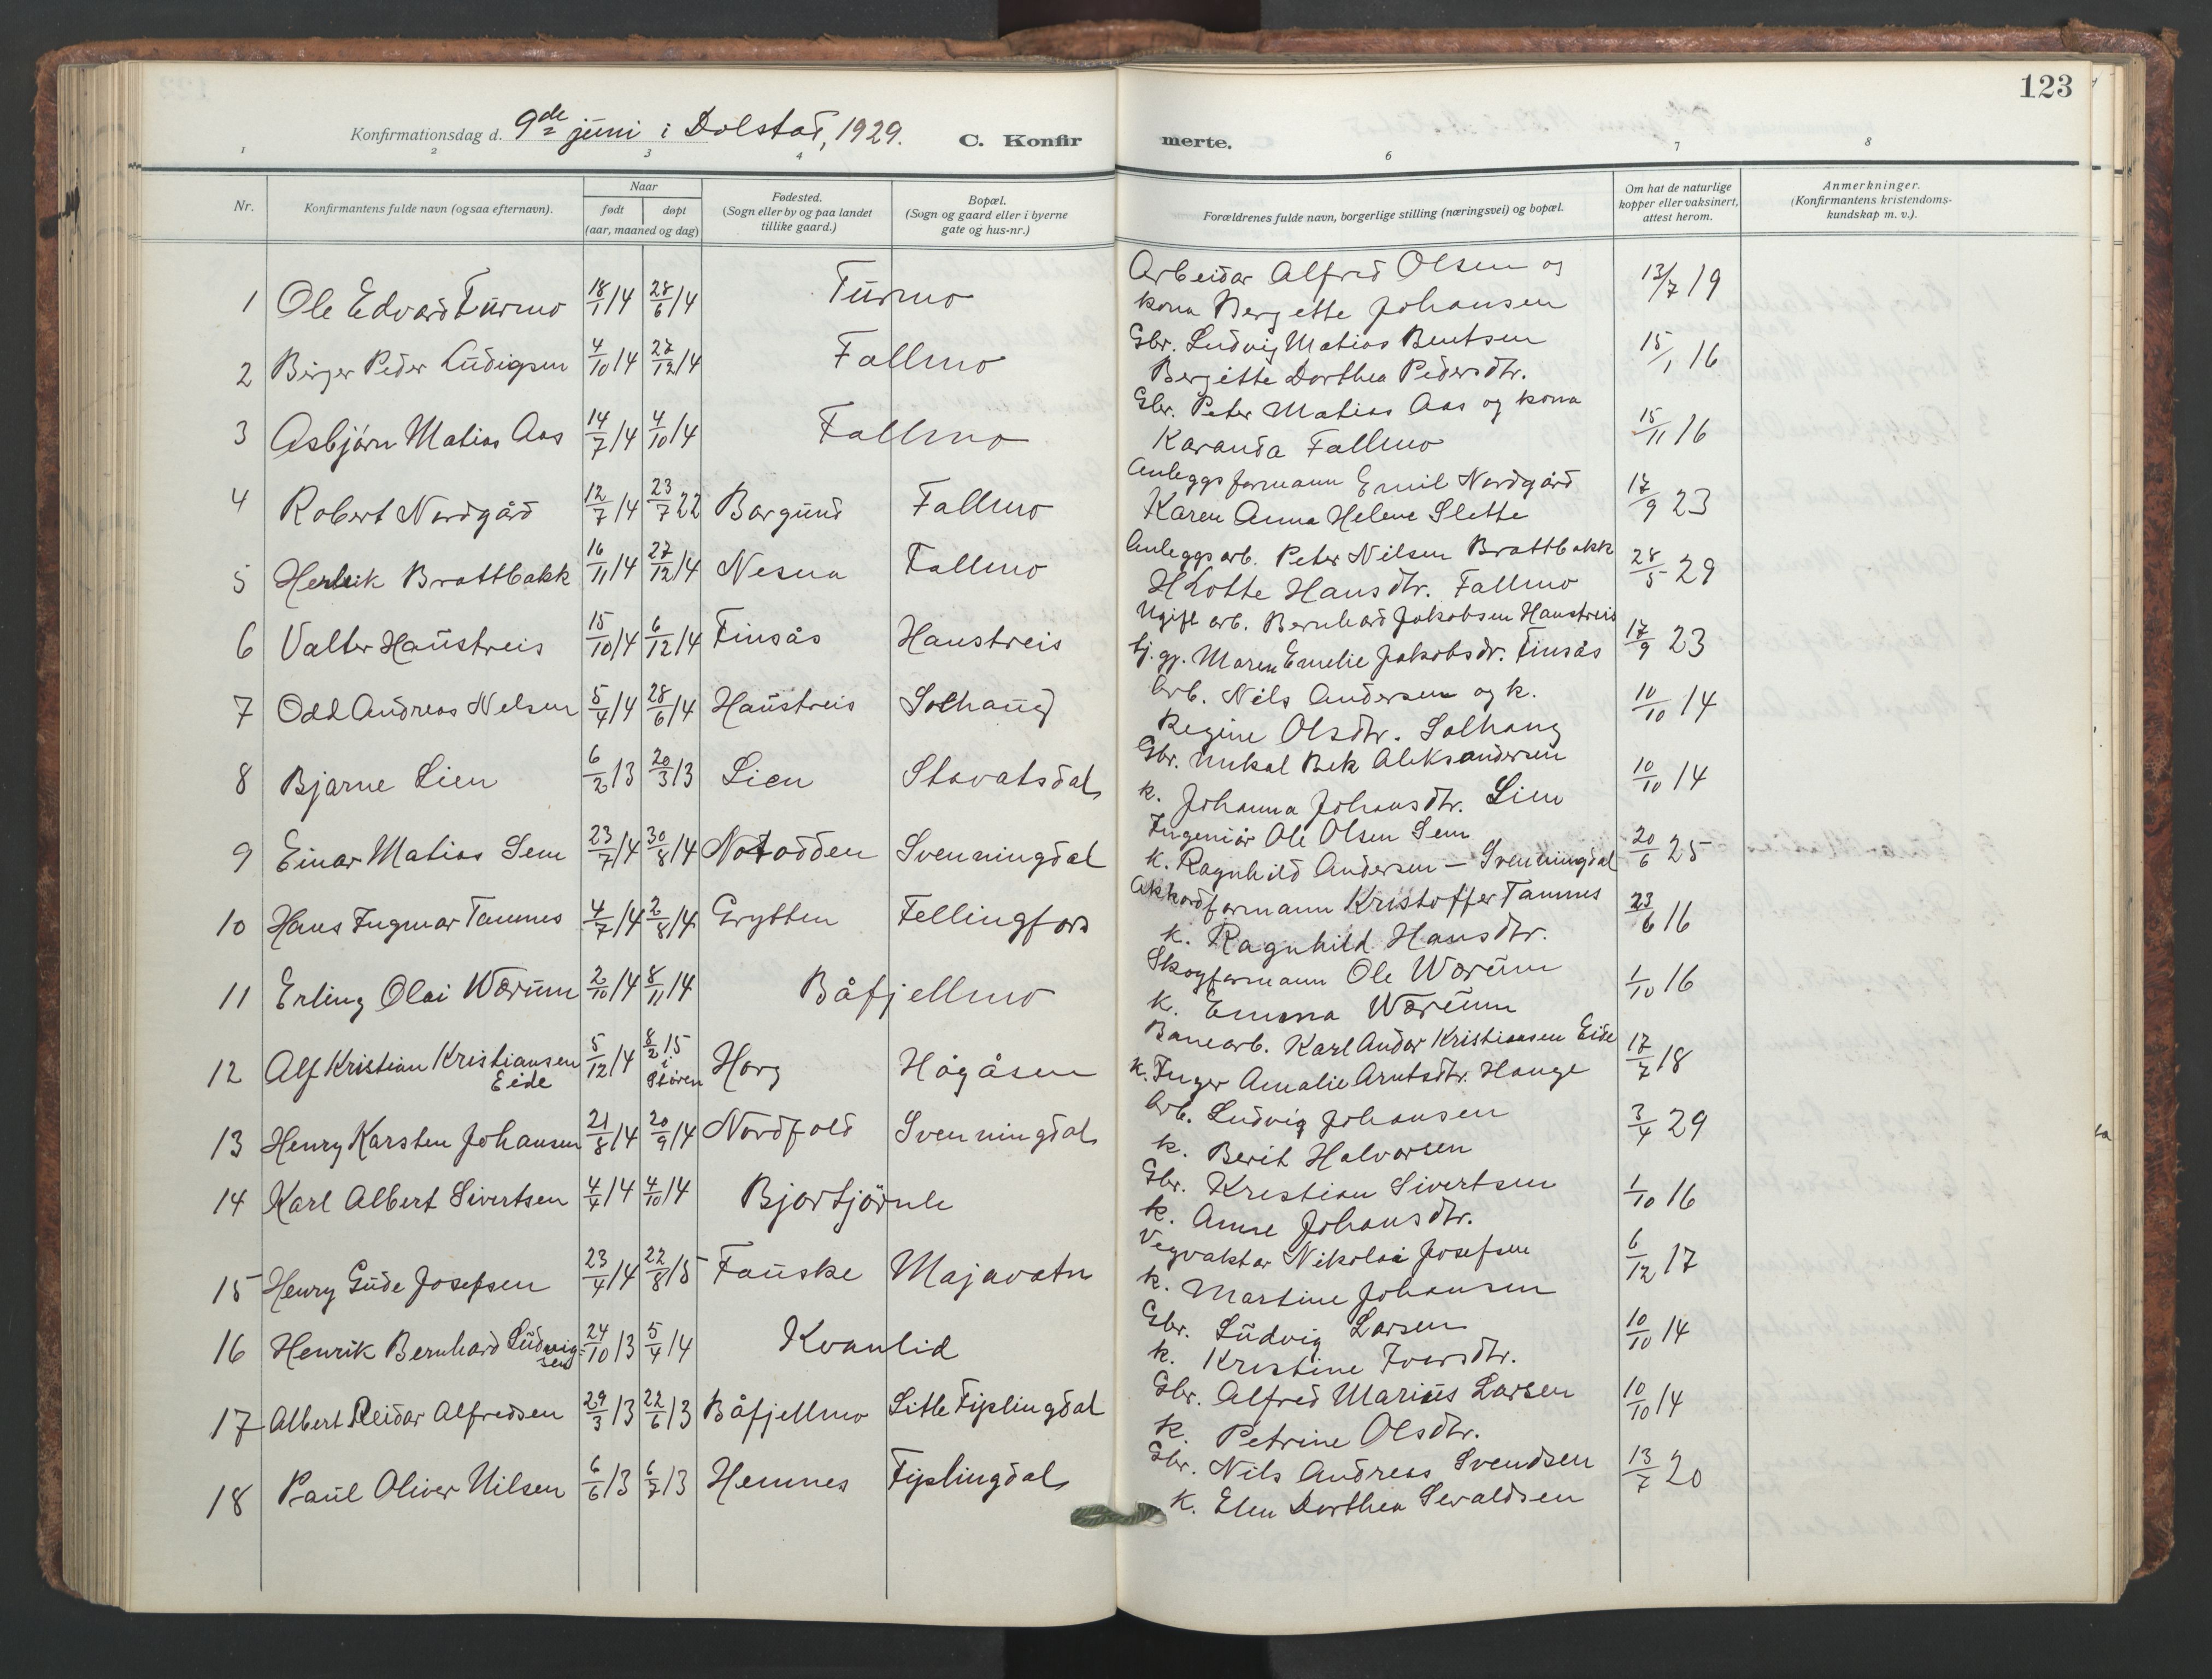 123
Konfirmationsdag d. 9de juni i Dolstad, 1929. C. Konfirmerte.
1 2 3 4 6 7 8
Nr. Konfirmantens fulde navn (ogsaa efternavn). Naar født døpt (aar, maaned og dag) Fødested. (Sogn eller by og paa landet tillike gaard.) Bopæl. (Sogn og gaard eller i byerne gate og hus-nr.) Forældrenes fulde navn, borgerlige stilling (næringsvei) og bopæl. Om hat de naturlige kopper eller vaksinert, attest herom. Anmerkninger. (Konfirmantens kristendomskundskap m. v.).
1 Ole Edvard Turmo 18/1 14 28/6 14 Turmo Arbeidar Alfred Olsen og 13/7 19
kona Bergette Johansen
2 Birger Peder Ludigsen 4/10 14 27/12 14 Fallmo Gbr. Ludvig Matias Bentsen 15/1 16
Bergitte Dorthea Pedersdtr.
3 Asbjørn Matias Aas 14/7 14 4/10 14 Fallmo Gbr. Peter Matias Aas og kona 15/11 16
Karanda Fallmo
4 Robert Nordgård 12/7 14 23/7 22 Borgund Fallmo Anleggsformann Emil Nordgård 17/9 23
Karen Anna Helene Slette
5 Henrik Brattbakk 16/11 14 27/12 14 Nesna Fallmo Anleggsarb. Peter Nilsen Brattbakk 28/5 29
Lotte Hansdtr. Fallmo
6 Valter Haustreis 15/10 14 6/12 14 Finsås Haustreis Ugift arb. Bernhard Jakobsen Haustreis 17/9 23
tj. gj. Maren Emelie Jakobsdr. Finsås
7 Odd Andreas Nelsen 5/4 14 28/6 14 Haustreis Solhaug Arb. Nils Andersen og k. 10/10 14
Regine Olsdtr. Solhaug
8 Bjarne Lien 6/2 13 20/3 13 Lien Stavatsdal Gbr. Mikal Bek Aleksandersen 10/10 14
k. Johanna Johansdtr. Lien
9 Einar Matias Sem 23/7 14 30/8 14 Notodden Svenningdal Ingeniør Ole Olsen Sem 20/6 25
k. Ragnhild Andersen — Svenningdal
10 Hans Ingmar Tannes 4/7 14 2/8 14 Grytten Fellingfors Akkordformann Kristoffer Tannes 23/6 16
k. Ragnhild Hansdtr.
11 Erling Olai Wærum 2/10 14 8/11 14 Båfjellmo Skogformann Ole Wærum 1/10 16
k. Emma Wærum
12 Alf Kristian Kristiansen 5/12 14 8/2 15 i Støren Horg Hågåsen Banearb. Karl Andor Kristiansen Eide 17/7 18
Eide k. Inger Amalie Arntsdtr. Hauge
13 Henry Karsten Johansen 21/8 14 20/9 14 Nordfold Svenningdal Arb. Ludvig Johansen 3/4 29
k. Berit Halvorsen
14 Karl Albert Sivertsen 4/4 14 4/10 14 Bjortjørnli Gbr. Kristian Sivertsen 1/10 16
k. Anne Johansdtr.
15 Henry Gude Josefsen 23/4 14 22/8 15 Fauske Majavatn Vegvaktar Nikolai Josefsen 6/12 17
k. Martine Johansen
16 Henrik Bernhard Ludvigsen 24/10 13 5/4 14 Kvanlid Gbr. Ludvig Larsen 10/10 14
k. Kristine Iversdtr.
17 Albert Reidar Alfredsen 29/3 13 22/6 13 Båfjellmo Litle Fiplingdal Gbr. Alfred Marius Larsen 10/10 14
k. Petrine Olsdtr.
18 Paul Oliver Nilsen 6/6 13 6/7 13 Hemnes Fiplingdal Gbr. Nils Andreas Svendsen 13/7 20
k. Elen Dorthea Sevaldsen